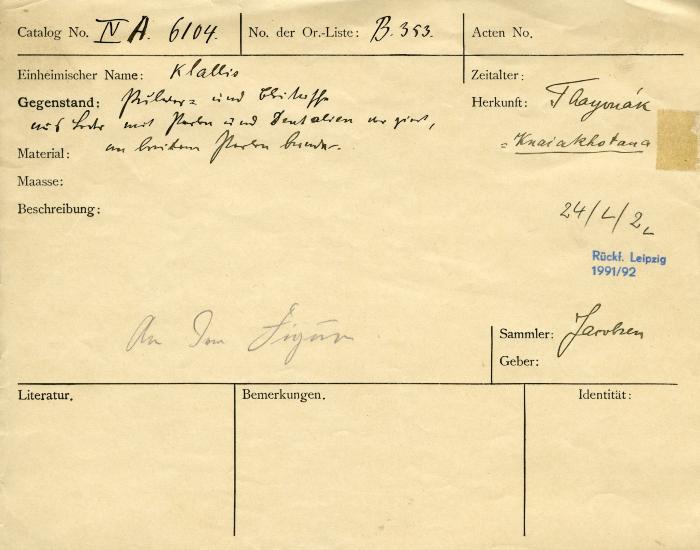 Catalog No. IV A. 6104. No. der Or.-Liste: B. 353. Acten No.
Einheimischer Name: Klallis Zeitalter:
Gegenstand: Pulver= und Herkunft: Thayonák
aus Leder mit Perlen und Dentalien verziert,
= Knaiakhotana
Material: an breitem Perlen
Maasse:
Beschreibung:
24/L/2
Rückf. Leipzig
1991/92
An Figur
Sammler: Jacobsen
Geber:
Literatur. Bemerkungen. Identität: